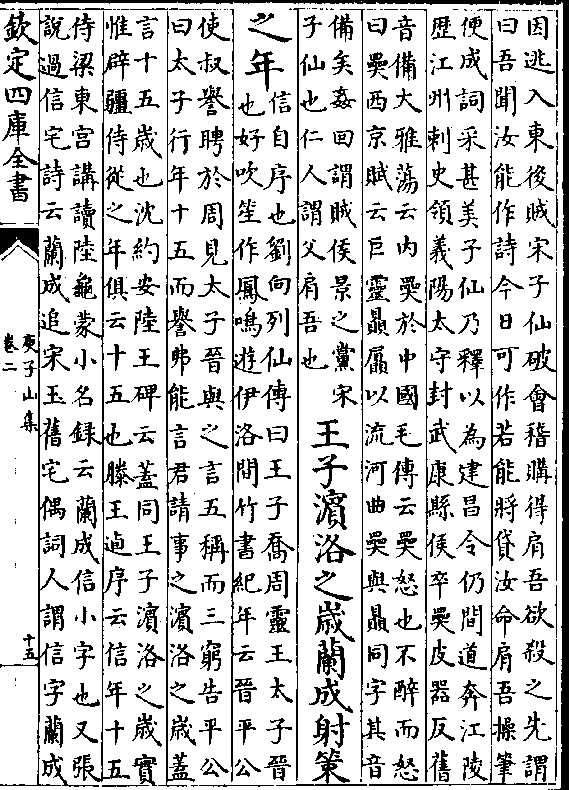 因逃入東後賊宋子仙破會稽購得肩吾欲殺之先謂
曰吾聞汝能作詩今日可作若能將貸汝命肩吾操筆
便成詞采甚美子仙乃釋以為建昌令仍間道奔江陵
歴江州刺史領義陽太守封武康縣侯卒奰皮器反舊
音備大雅蕩云内奰於中國毛傳云奰怒也不醉而怒
曰奰西京賦云巨靈贔屭以流河曲奰與贔同字其音
備矣姦回謂賊侯景之黨宋
子仙也仁人謂父肩吾也
王子濱洛之嵗蘭成射策
之年
信自序也劉向列仙傳曰王子喬周靈王太子晉
也好吹笙作鳳鳴遊伊洛間竹書紀年云晉平公
使叔譽聘於周見太子晉與之言五稱而三窮告平公
曰太子行年十五而譽弗能言君請事之濱洛之嵗蓋
言十五嵗也沈約安陸王碑云蓋同王子濱洛之嵗實
惟辟疆侍從之年俱云十五也滕王逌序云信年十五
侍梁東宫講讀陸龜蒙小名録云蘭成信小字也又張
說過信宅詩云蘭成追宋玉舊宅偶詞人謂信字蘭成
欽定四庫全書
庾子山集
卷二
十五